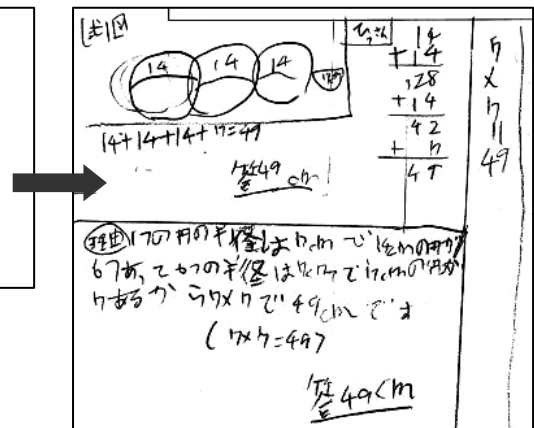 図
14 14 14
14+14+14+7=49
答49cm
ひっさん
14
+14
28
+14
42
+ 7
49
7×7=49
理由 1つの円の半径は7cmで
6つの半径は7cmで
7あるから7×7で49cmです
(7×7=49)
答49cm